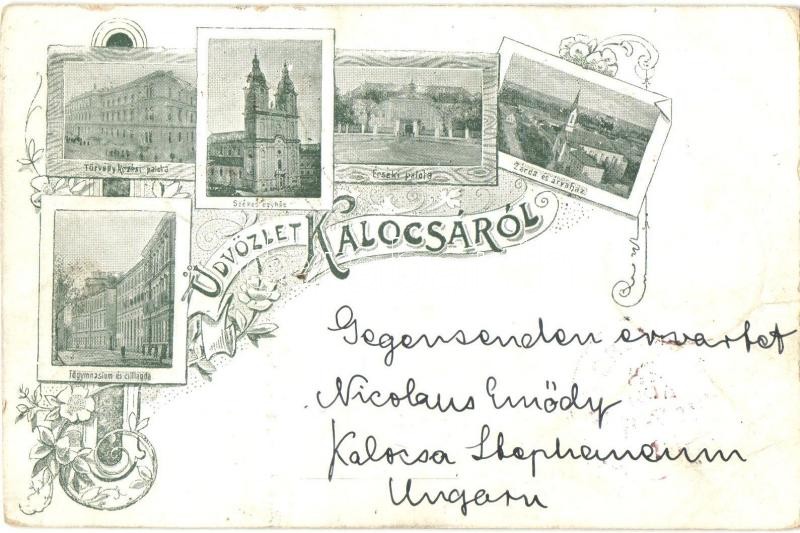 Törvénykezési palota
Székes egyház
Érseki palota
Zárda és árvaház
ÜDVÖZLET KALOCSÁRÓL
Főgymnasium és csillagda
Gegensenden erwartet
Nicolaus Emödy
Kalocsa Stephaneum
Ungarn